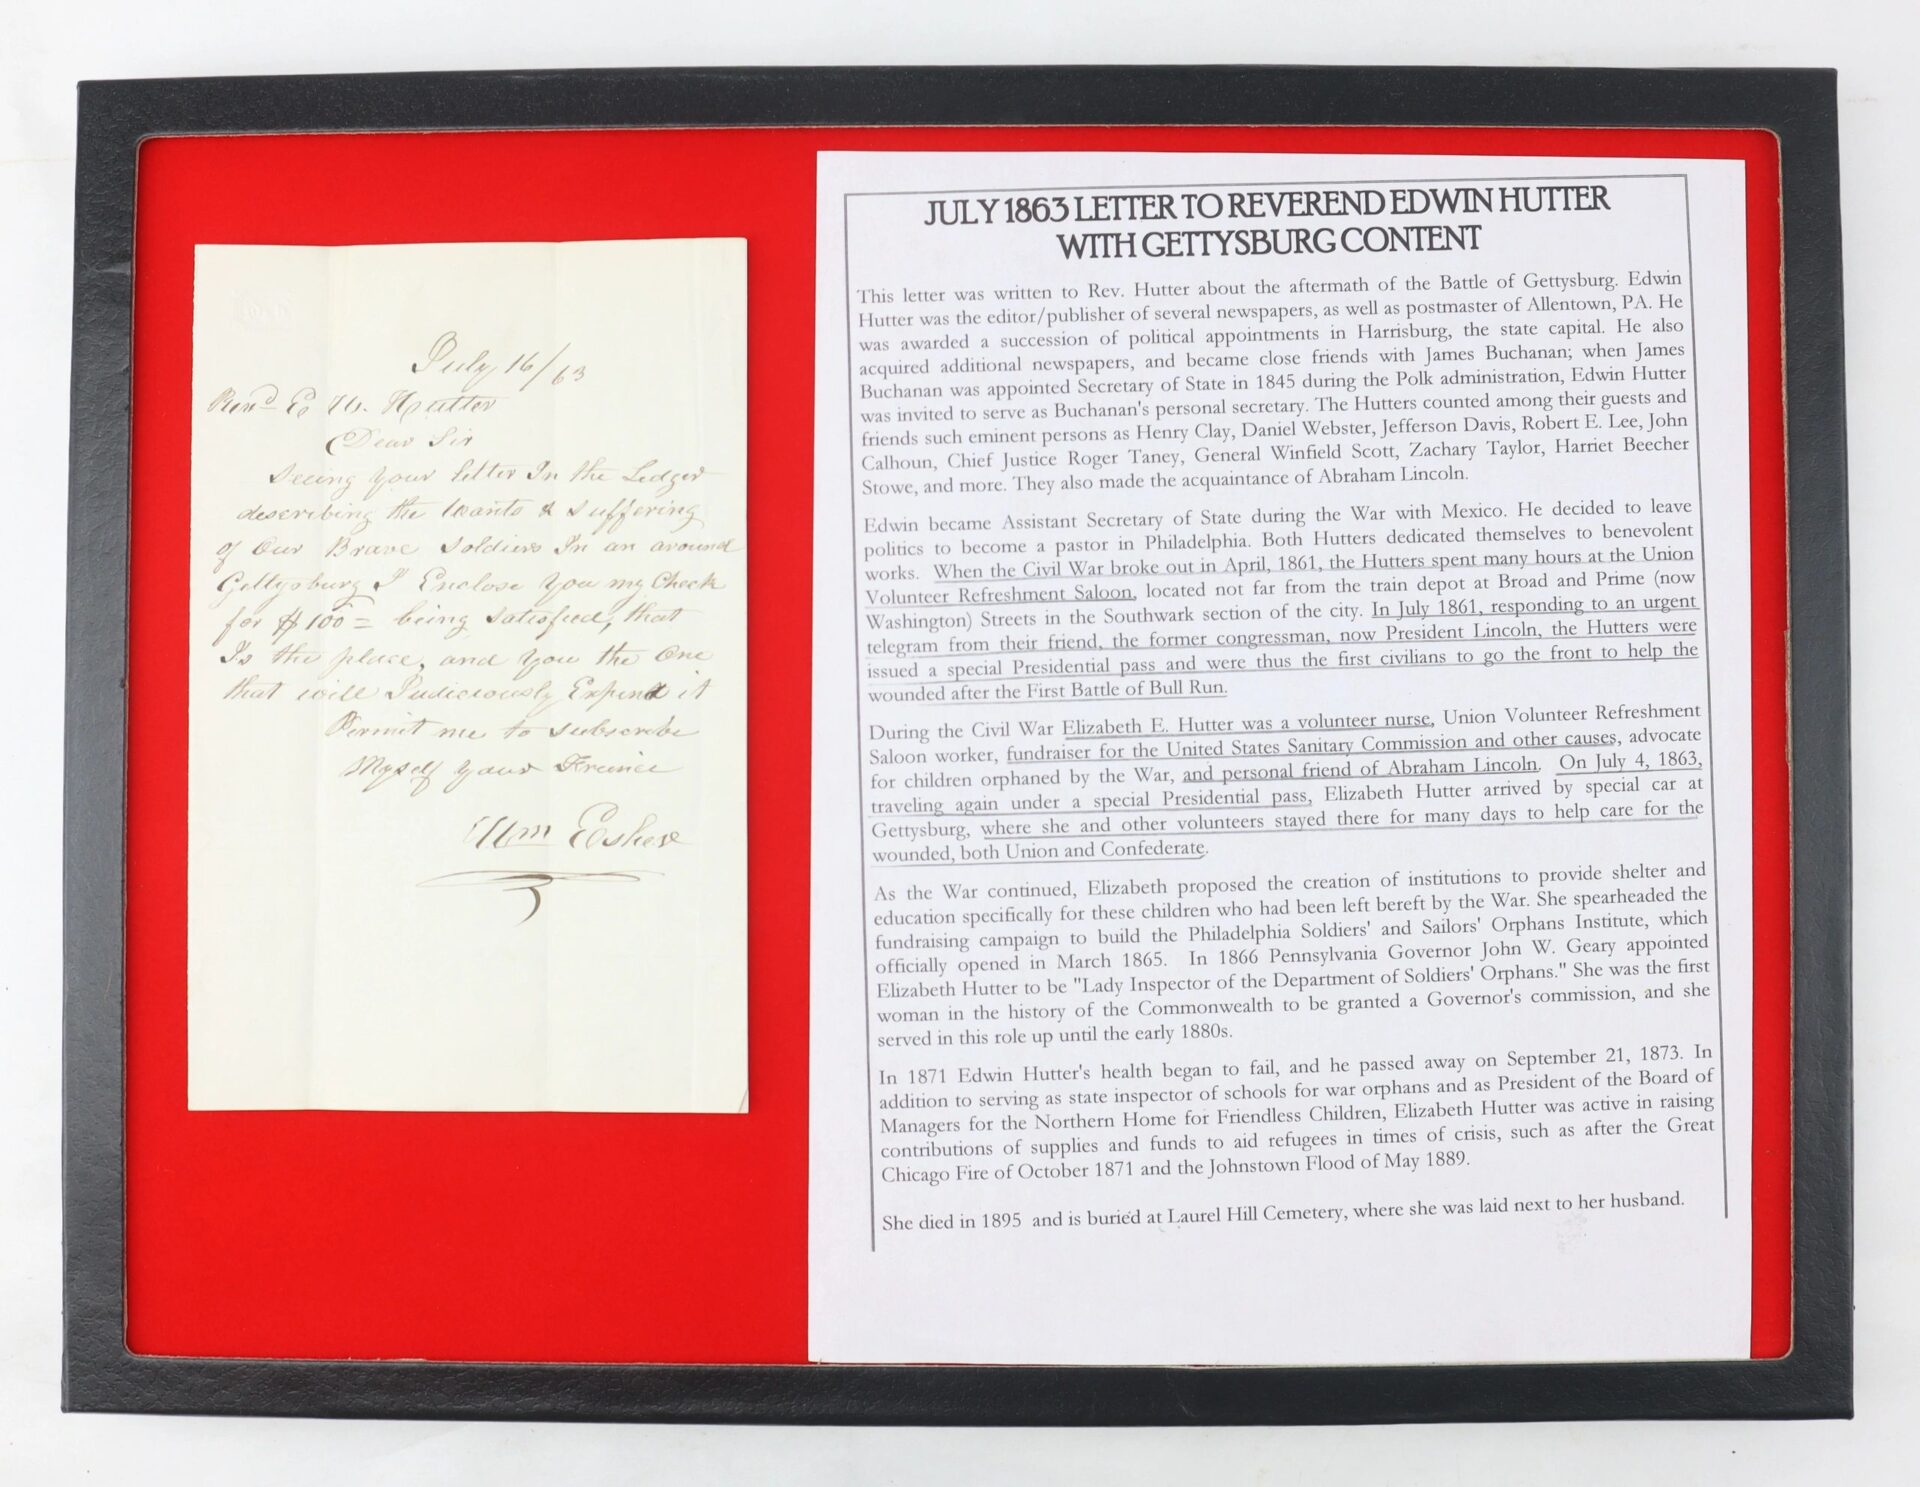 July 16/63
Revd E W. Hutter
Dear Sir
Seeing your letter In the Ledger
describing the Wants & suffering
of Our Brave Soldiers In an around
Gettysburg I Enclose you my Check
for $100 = being satisfied, that
Is the place, and you the One
that will Judiciously Expend it
Permit me to subscribe
Myself your Friend
Wm
JULY 1863 LETTER TO REVEREND EDWIN HUTTER
WITH GETTYSBURG CONTENT
This letter was written to Rev. Hutter about the aftermath of the Battle of Gettysburg. Edwin
Hutter was the editor/publisher of several newspapers, as well as postmaster of Allentown, PA. He
was awarded a succession of political appointments in Harrisburg, the state capital. He also
acquired additional newspapers, and became close friends with James Buchanan; when James
Buchanan was appointed Secretary of State in 1845 during the Polk administration, Edwin Hutter
was invited to serve as Buchanan's personal secretary. The Hutters counted among their guests and
friends such eminent persons as Henry Clay, Daniel Webster, Jefferson Davis, Robert E. Lee, John
Calhoun, Chief Justice Roger Taney, General Winfield Scott, Zachary Taylor, Harriet Beecher
Stowe, and more. They also made the acquaintance of Abraham Lincoln.
Edwin became Assistant Secretary of State during the War with Mexico. He decided to leave
politics to become a pastor in Philadelphia. Both Hutters dedicated themselves to benevolent
works. When the Civil War broke out in April, 1861, the Hutters spent many hours at the Union
Volunteer Refreshment Saloon, located not far from the train depot at Broad and Prime (now
Washington) Streets in the Southwark section of the city. In July 1861, responding to an urgent
telegram from their friend, the former congressman, now President Lincoln, the Hutters were
issued a special Presidential pass and were thus the first civilians to go the front to help the
wounded after the First Battle of Bull Run.
During the Civil War Elizabeth E. Hutter was a volunteer nurse, Union Volunteer Refreshment
Saloon worker, fundraiser for the United States Sanitary Commission and other causes, advocate
for children orphaned by the War, and personal friend of Abraham Lincoln. On July 4, 1863,
traveling again under a special Presidential pass, Elizabeth Hutter arrived by special car at
Gettysburg, where she and other volunteers stayed there for many days to help care for the
wounded, both Union and Confederate.
As the War continued, Elizabeth proposed the creation of institutions to provide shelter and
education specifically for these children who had been left bereft by the War. She spearheaded the
fundraising campaign to build the Philadelphia Soldiers' and Sailors' Orphans Institute, which
officially opened in March 1865. In 1866 Pennsylvania Governor John W. Geary appointed
Elizabeth Hutter to be "Lady Inspector of the Department of Soldiers' Orphans." She was the first
woman in the history of the Commonwealth to be granted a Governor's commission, and she
served in this role up until the early 1880s.
In 1871 Edwin Hutter's health began to fail, and he passed away on September 21, 1873. In
addition to serving as state inspector of schools for war orphans and as President of the Board of
Managers for the Northern Home for Friendless Children, Elizabeth Hutter was active in raising
contributions of supplies and funds to aid refugees in times of crisis, such as after the Great
Chicago Fire of October 1871 and the Johnstown Flood of May 1889.
She died in 1895 and is buried at Laurel Hill Cemetery, where she was laid next to her husband.